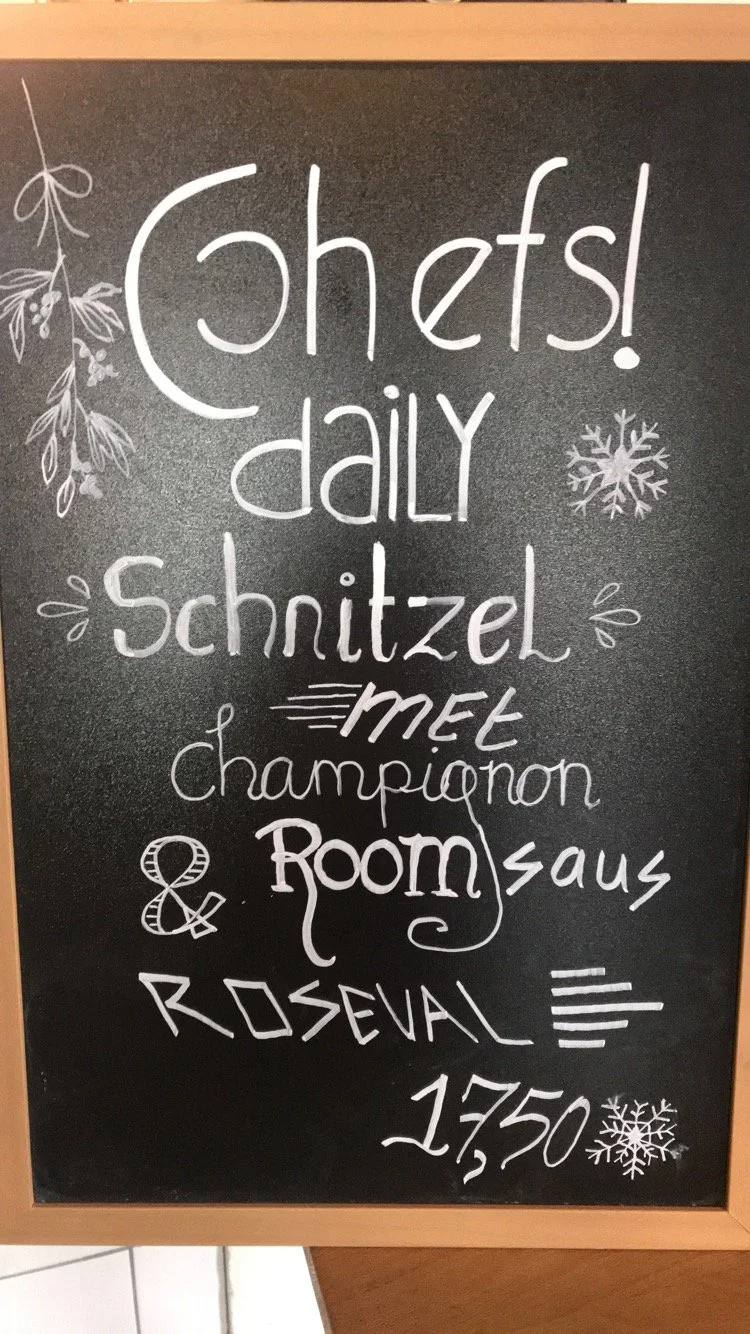 Chefs!
daily
Schnitzel
met
champignon
& Room saus
ROSEVAL
17,50